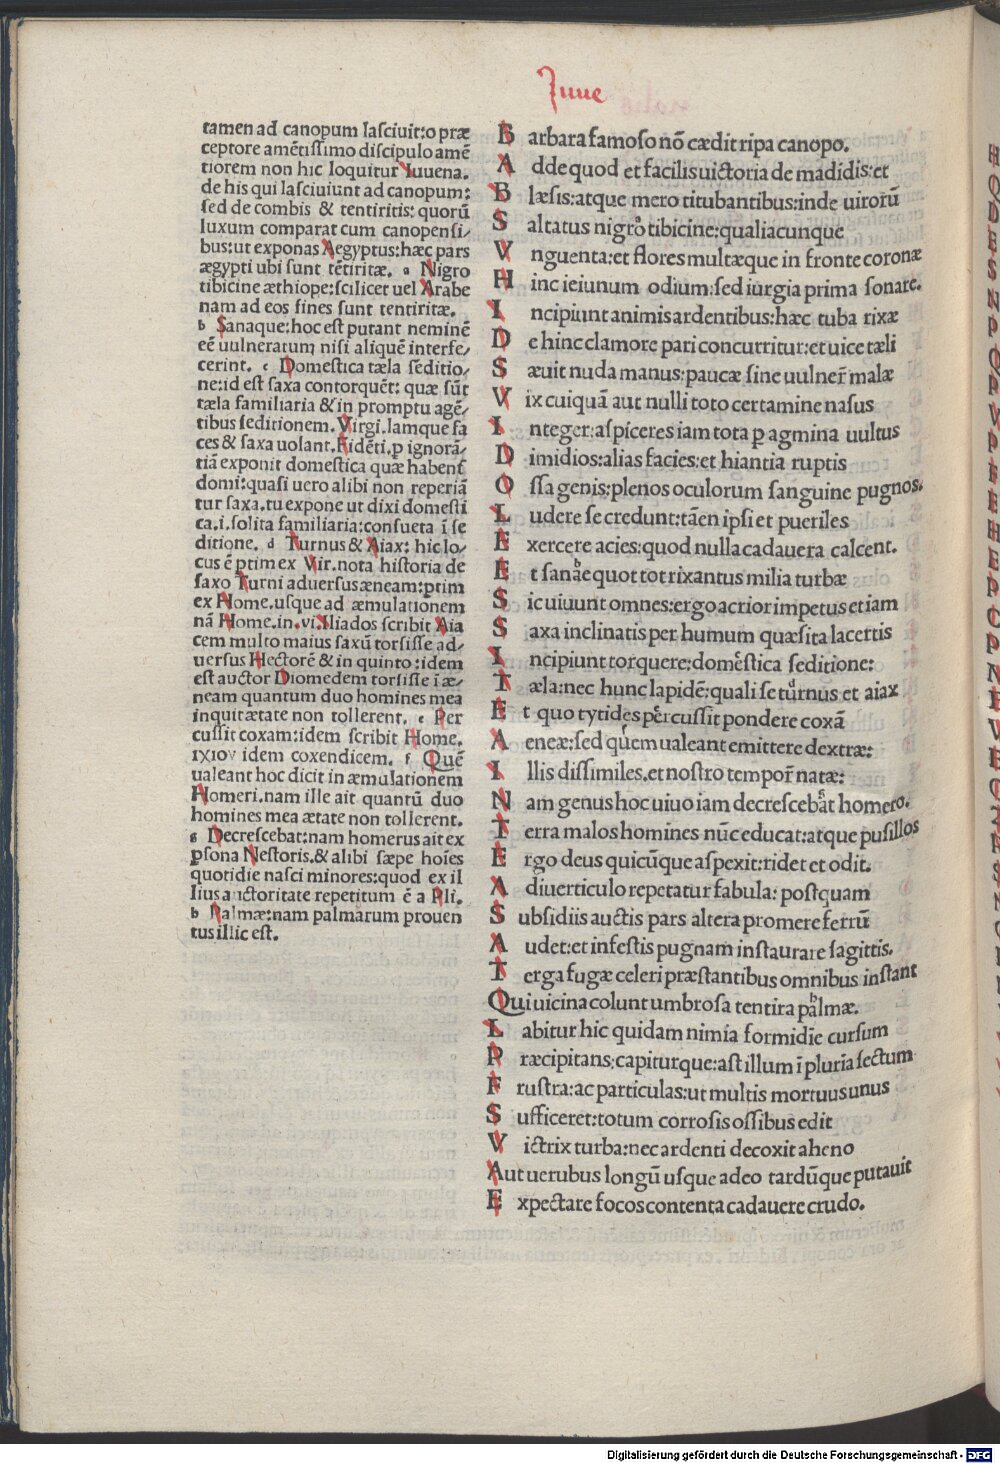 Juue
tamen ad canopum lasciuit:o præ
ceptore amētissimo discipulo amē
tiorem non hic loquitur Iuuena.
de his qui lasciuiunt ad canopum:
sed de combis & tentiritis: quorū
luxum comparat cum canopensi/
bus:ut exponas Aegyptus:hæc pars
ægypti ubi sunt tētiritæ. a Nigro
tibicine æthiope:scilicet uel Arabe
nam ad eos fines sunt tentiritæ.
b Sanaque:hoc est putant neminē
eē uulneratum nisi aliquē interfe/
cerint. c Domestica tæla seditio/
ne:id est saxa contorquēt: quæ sūt
tæla familiaria & in promptu agē/
tibus seditionem. Virgi. Iamque fa
ces & saxa uolant. Fidēti. p ignorā/
tiā exponit domestica quæ habent
domi:quasi uero alibi non reperiā
tur saxa. tu expone ut dixi domesti
ca.i. solita familiaria: consueta ī se
ditione. d Turnus & Aiax: hic lo/
cus ē ptim ex Vir. nota historia de
saxo Turni aduersus æneam: ptim
ex Home. usque ad æmulationem
nā Home. in .vi. Iliados scribit Aia
cem multo maius saxū torsisse ad/
uersus Hectorē & in quinto: idem
est auctor Diomedem torsisse ī æ/
neam quantum duo homines mea
inquit ætate non tollerent. e Per
cussit coxam: idem scribit Home.
ιχιον idem coxendicem. f Quē
ualeant hoc dicit in æmulationem
Homeri. nam ille ait quantū duo
homines mea ætate non tollerent.
g Decrescebat: nam homerus ait ex
psona Nestoris. & alibi sæpe hoīes
quotidie nasci minores: quod ex il
lius auctoritate repetitum ē a Pli.
h Palmæ: nam palmarum prouen
tus illic est.
B arbara famoso nō cædit ripa canopo.
A dde quod et facilis uictoria de madidis: et
B læsis: atque mero titubantibus: inde uirorū
S altatus nigro a tibicine: qualiacunque
V nguenta: et flores multæque in fronte coronæ
H inc ieiunum odium: sed iurgia prima sonare.
I ncipiunt animis ardentibus: hæc tuba rixæ
D e hinc clamore pari concurritur: et uice tæli
S æuit nuda manus: paucæ sine uulner̄ malæ
V ix cuiquā aut nulli toto certamine nasus
I nteger: aspiceres iam tota p agmina uultus
D imidios: alias facies: et hiantia ruptis
O ssa genis: plenos oculorum sanguine pugnos.
L udere se credunt: tāen ipsi et pueriles
E xercere acies: quod nulla cadauera calcent.
E t sanāe b quot tot rixantus milia turbæ
S ic uiuunt omnes: ergo acrior impetus et iam
S axa inclinatis per humum quæsita lacertis
I ncipiunt torquere: domestica c seditione:
T æla: nec hunc lapidē: quali se turnus d et aiax
E t quo tytides percussit e pondere coxā
A eneæ: sed quem f ualeant emittere dextræ:
I llis dissimiles. et nostro tempor̄ natæ:
N am genus hoc uiuo iam decrescebat g homero.
T erra malos homines nūc educat: atque pusillos
E rgo deus quicūque aspexit: ridet et odit.
A diuerticulo repetatur fabula: postquam
S ubsidiis auctis pars altera promere ferrū
A udet: et infestis pugnam instaurare sagittis.
T erga fugæ celeri præstantibus omnibus instant
Qui uicina colunt umbrosa tentira palmæ. h
L abitur hic quidam nimia formidīe cursum
P ræcipitans: capiturque: ast illum ī plurīa sectum
F rustra: ac particulas: ut multis mortuus unus
S ufficeret: totum corrosis ossibus edit
V ictrix turba: nec ardenti decoxit aheno
A ut uerubus longū usque adeo tardūque putauit
E xpectare focos contenta cadauere crudo.
Digitalisierung gefördert durch die Deutsche Forschungsgemeinschaft - DFG